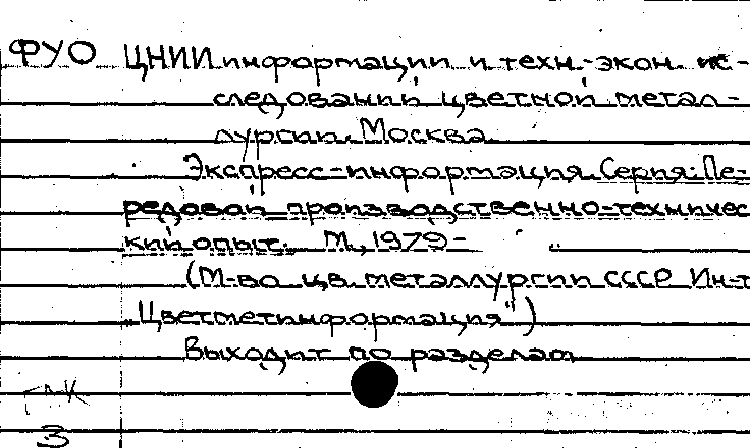 ФУО ЦНИИ информации и техн.-экон. ис-
следований цветной метал-
лургии. Москва
Экспресс-информация. Серия: Пе-
редовой производственно-техничес
кий опыт. М., 1979-
(М-во цв. металлургии СССР Ин-т
„Цветметинформация")
Выходит по разделам
ГМК
3